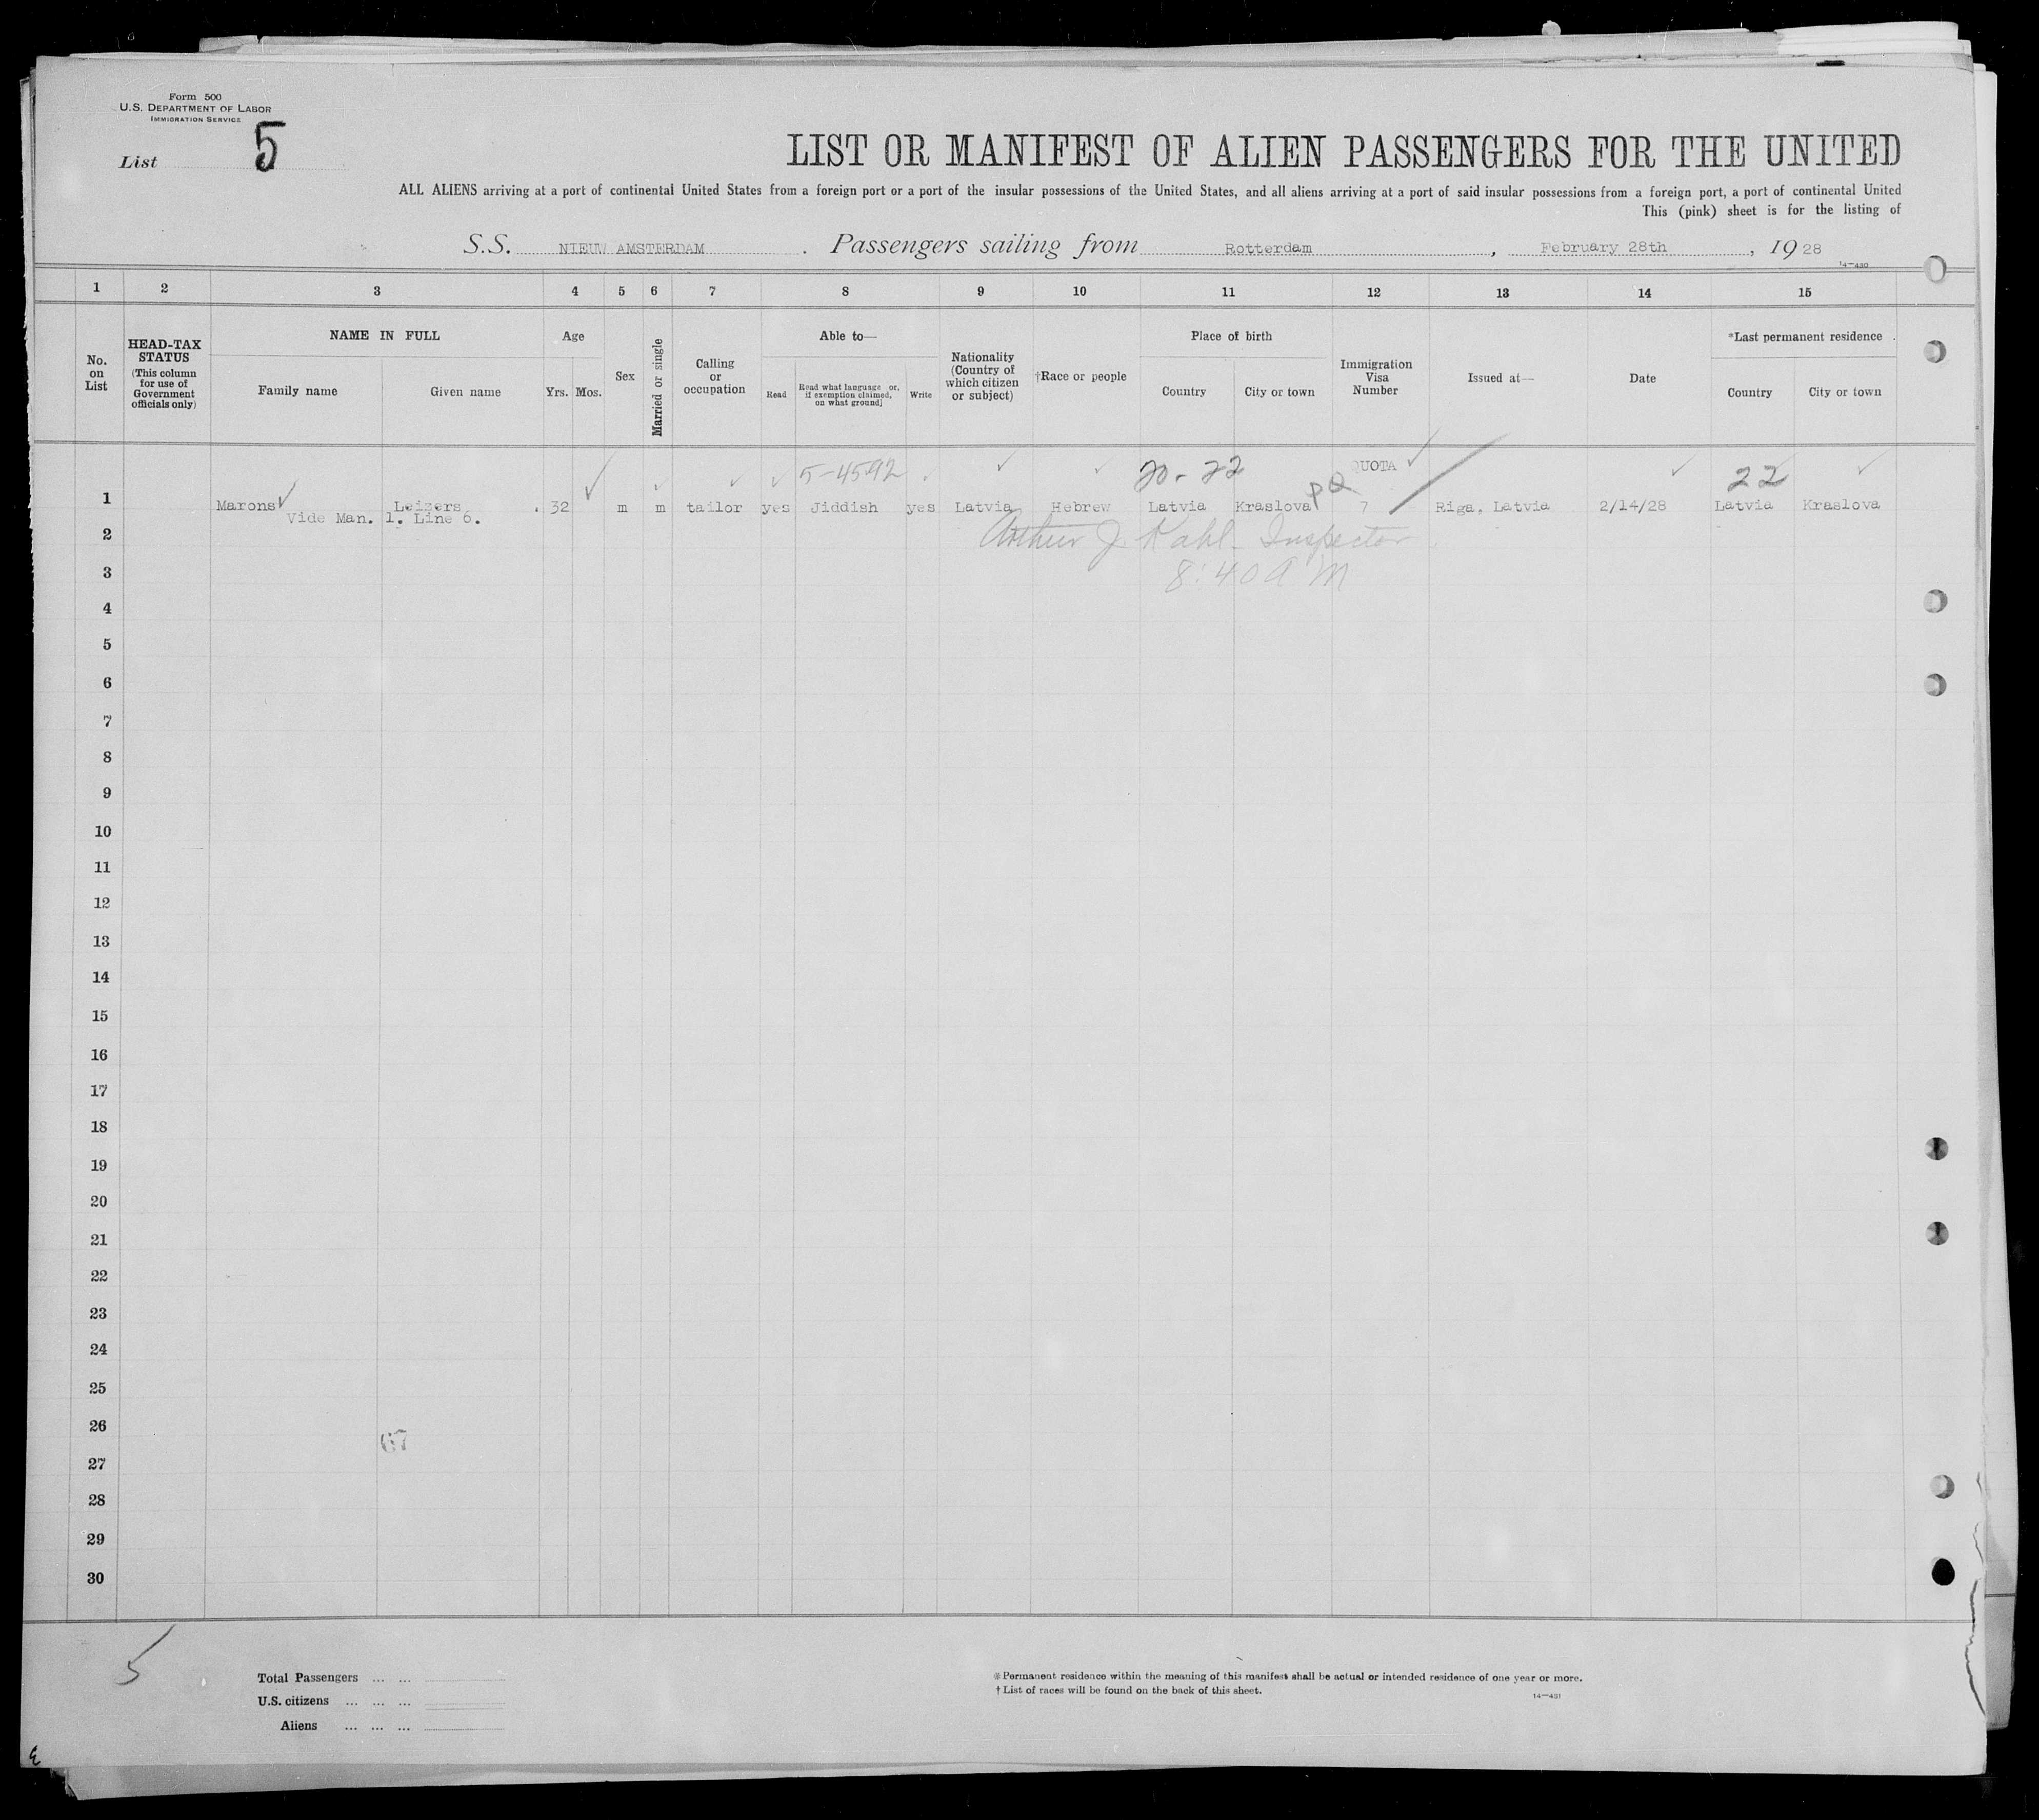 Form 500
U.S. DEPARTMENT OF LABOR
IMMIGRATION SERVICE
List 5
LIST OR MANIFEST OF ALIEN PASSENGERS FOR THE UNITED
ALL ALIENS arriving at a port of continental United States from a foreign port or a port of the insular possessions of the United States, and all aliens arriving at a port of said insular possessions from a foreign port, a port of continental United
This (pink) sheet is for the listing of
S.S. NIEUW AMSTERDAM. Passengers sailing from Rotterdam, February 28th, 1928
14—480
1 2 3 4 5 6 7 8 9 10 11 12 13 14 15
No. on List
HEAD-TAX STATUS (This column for use of Government officials only)
NAME IN FULL
Family name
Given name
Age
Yrs. Mos.
Sex
Married or single
Calling or occupation
Able to—
Read
Read what language or, if exemption claimed, on what ground]
Write
Nationality (Country of which citizen or subject)
†Race or people
Place of birth
Country
City or town
Immigration Visa Number
Issued at—
Date
*Last permanent residence
Country
City or town
5-4592 20-22 QUOTA 22
1 Marons Leizers 32 m m tailor yes Jiddish yes Latvia Hebrew Latvia Kraslova PQ 7 Riga, Latvia 2/14/28 Latvia Kraslova
Vide Man. 1. Line 6.
2 Arthur J Kahl - Inspector
3 8:40 AM
4
5
6
7
8
9
10
11
12
13
14
15
16
17
18
19
20
21
22
23
24
25
26
67
27
28
29
30
5
Total Passengers ... ...
U.S. citizens ... ... ...
Aliens ... ... ...
*Permanent residence within the meaning of this manifest shall be actual or intended residence of one year or more.
†List of races will be found on the back of this sheet.
14—481